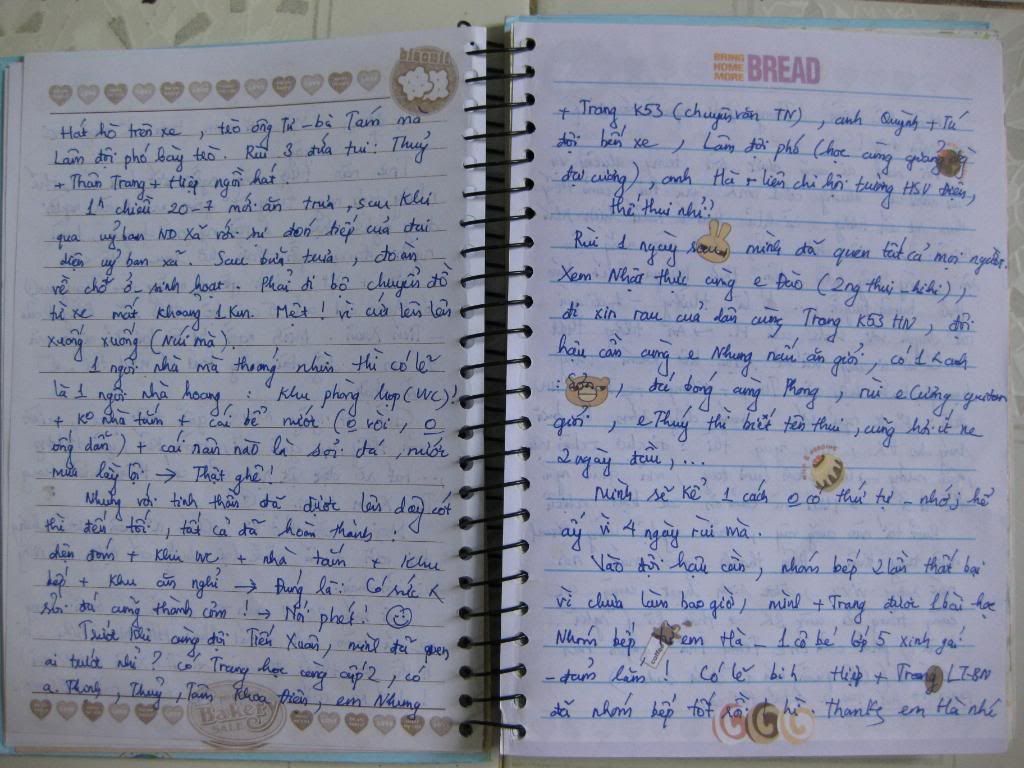 biscuit
Hát hò trên xe, tèo ông Tư - bà Tám mà
Lâm đội phó bày trò. Rùi 3 đứa tui: Thuỷ
+ Thân Trang + Hiệp ngồi hát.
1h chiều 20-7 mới ăn trưa, sau khi
qua uỷ ban ND Xã với sự đón tiếp của đại
diện uỷ ban xã. Sau bữa trưa, đoàn
về chỗ ở - sinh hoạt. Phải đi bộ chuyển đồ
từ xe mất khoảng 1Km. Mệt! vì cứ lên lên
xuống xuống (Núi mà).
1 ngôi nhà mà thoáng nhìn thì có lẽ
là 1 ngôi nhà hoang: Khu phòng (WC)
+ Ko nhà tắm + cái bể nước (0 vòi, 0
ống dẫn) + cái sân nào là sỏi đá, nước
mưa lầy lội → Thật ghê!
Nhưng với tinh thần đã được lên dây cót
thì đến tối, tất cả đã hoàn thành!
đèn đóm + Khu WC + nhà tắm + Khu
bếp + Khu ăn nghỉ → Đúng là: Có sức
sỏi đá cũng thành cơm! → Nổi phết!
Trước khi cùng đội Tiến Xuân, mình đã quen
ai trước nhỉ? có Trang học cùng cấp 2, có
a. Thanh, Thuỷ, Tâm Khoa Điện, em Nhung
Baker
SALE
BRING HOME MORE BREAD
+ Trang K53 (chuyên văn TN), anh Quỳnh + Tú
đội bến xe, Lâm đội phó (học cùng quãng
đại cương), anh Hà + liên chi hội trưởng HSV Điện,
thế thui nhỉ?
Rùi 1 ngày sau mình đã quen tất cả mọi người.
Xem Nhật thực cùng e Đào (2ng thui - hihi),
đi xin rau của dân cùng Trang K53 HN, đội
hậu cần cùng e Nhung nấu ăn giỏi, có 1 anh
, đá bóng cùng Phong, rùi e Cường guitar
giỏi, e Thuý thì biết tên thui, cũng hơi ít
2 ngày đầu, ...
Mình sẽ kể 1 cách 0 có thứ tự - nhớ j kể
ấy vì 4 ngày rùi mà.
Vào đội hậu cần, nhóm bếp 2 lần thất bại
vì chưa làm bao giờ, mình + Trang được 1 bài học
Nhóm bếp từ em Hà - 1 cô bé lớp 5 xinh gái
- đảm lắm! Có lẽ bih Hiệp + Trang LT-BN
đã nhóm bếp tốt rồi hì. Thanks em Hà nhé